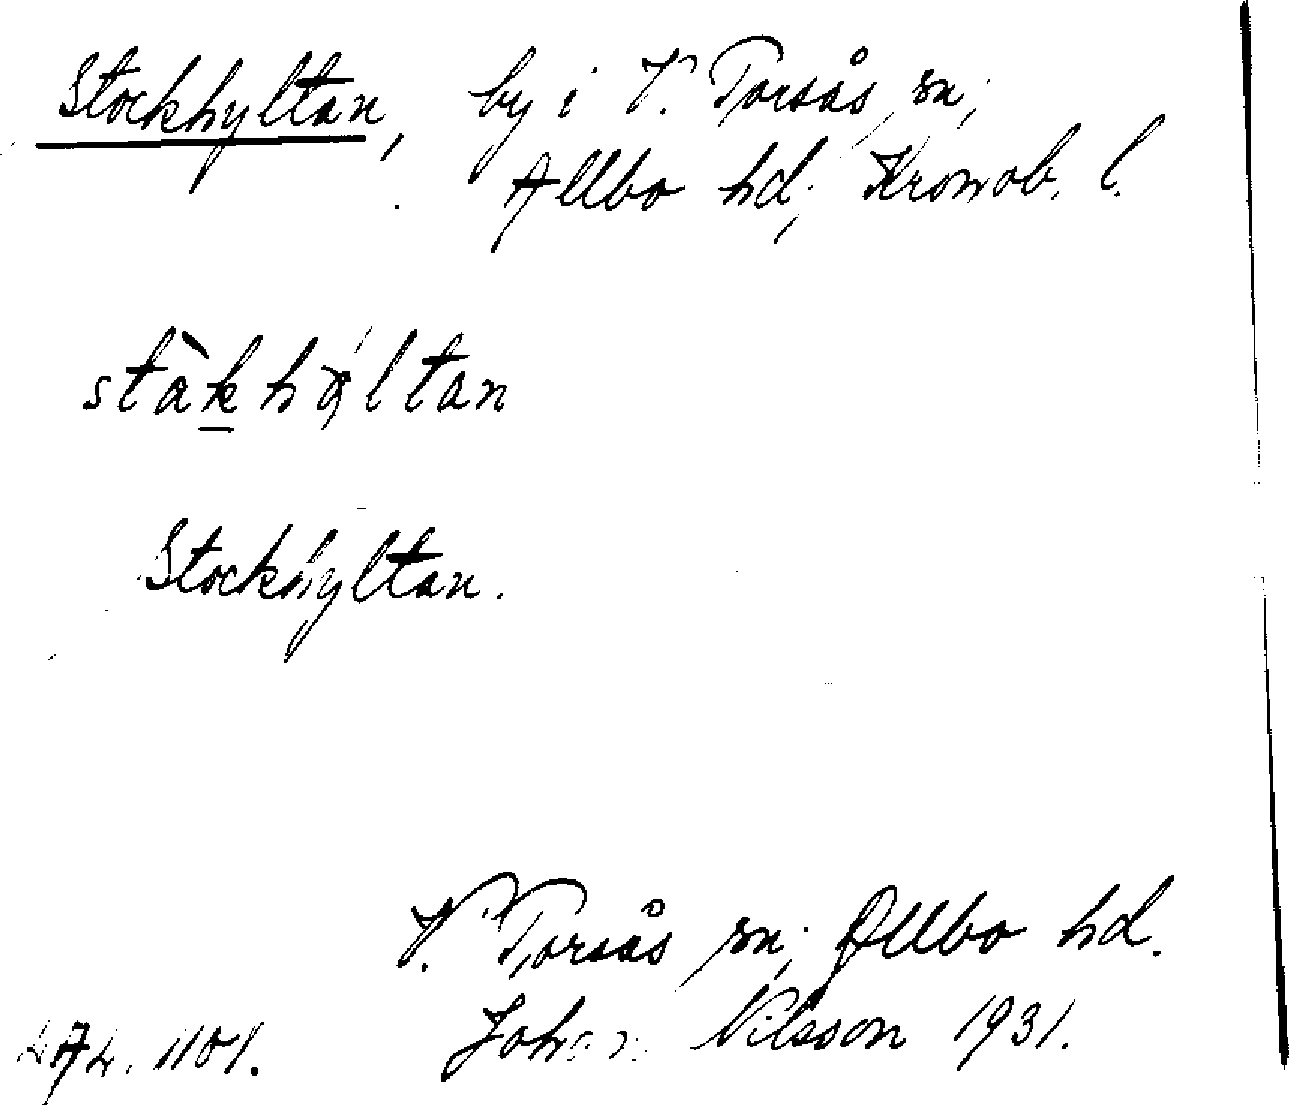 Stockhyltan, by i V. Torsås sn,
Allbo hd, Kronob. l.
stàkhýltan
Stockhyltan.
V. Torsås sn, Allbo hd.
Johan Nilsson 1931.
1101.